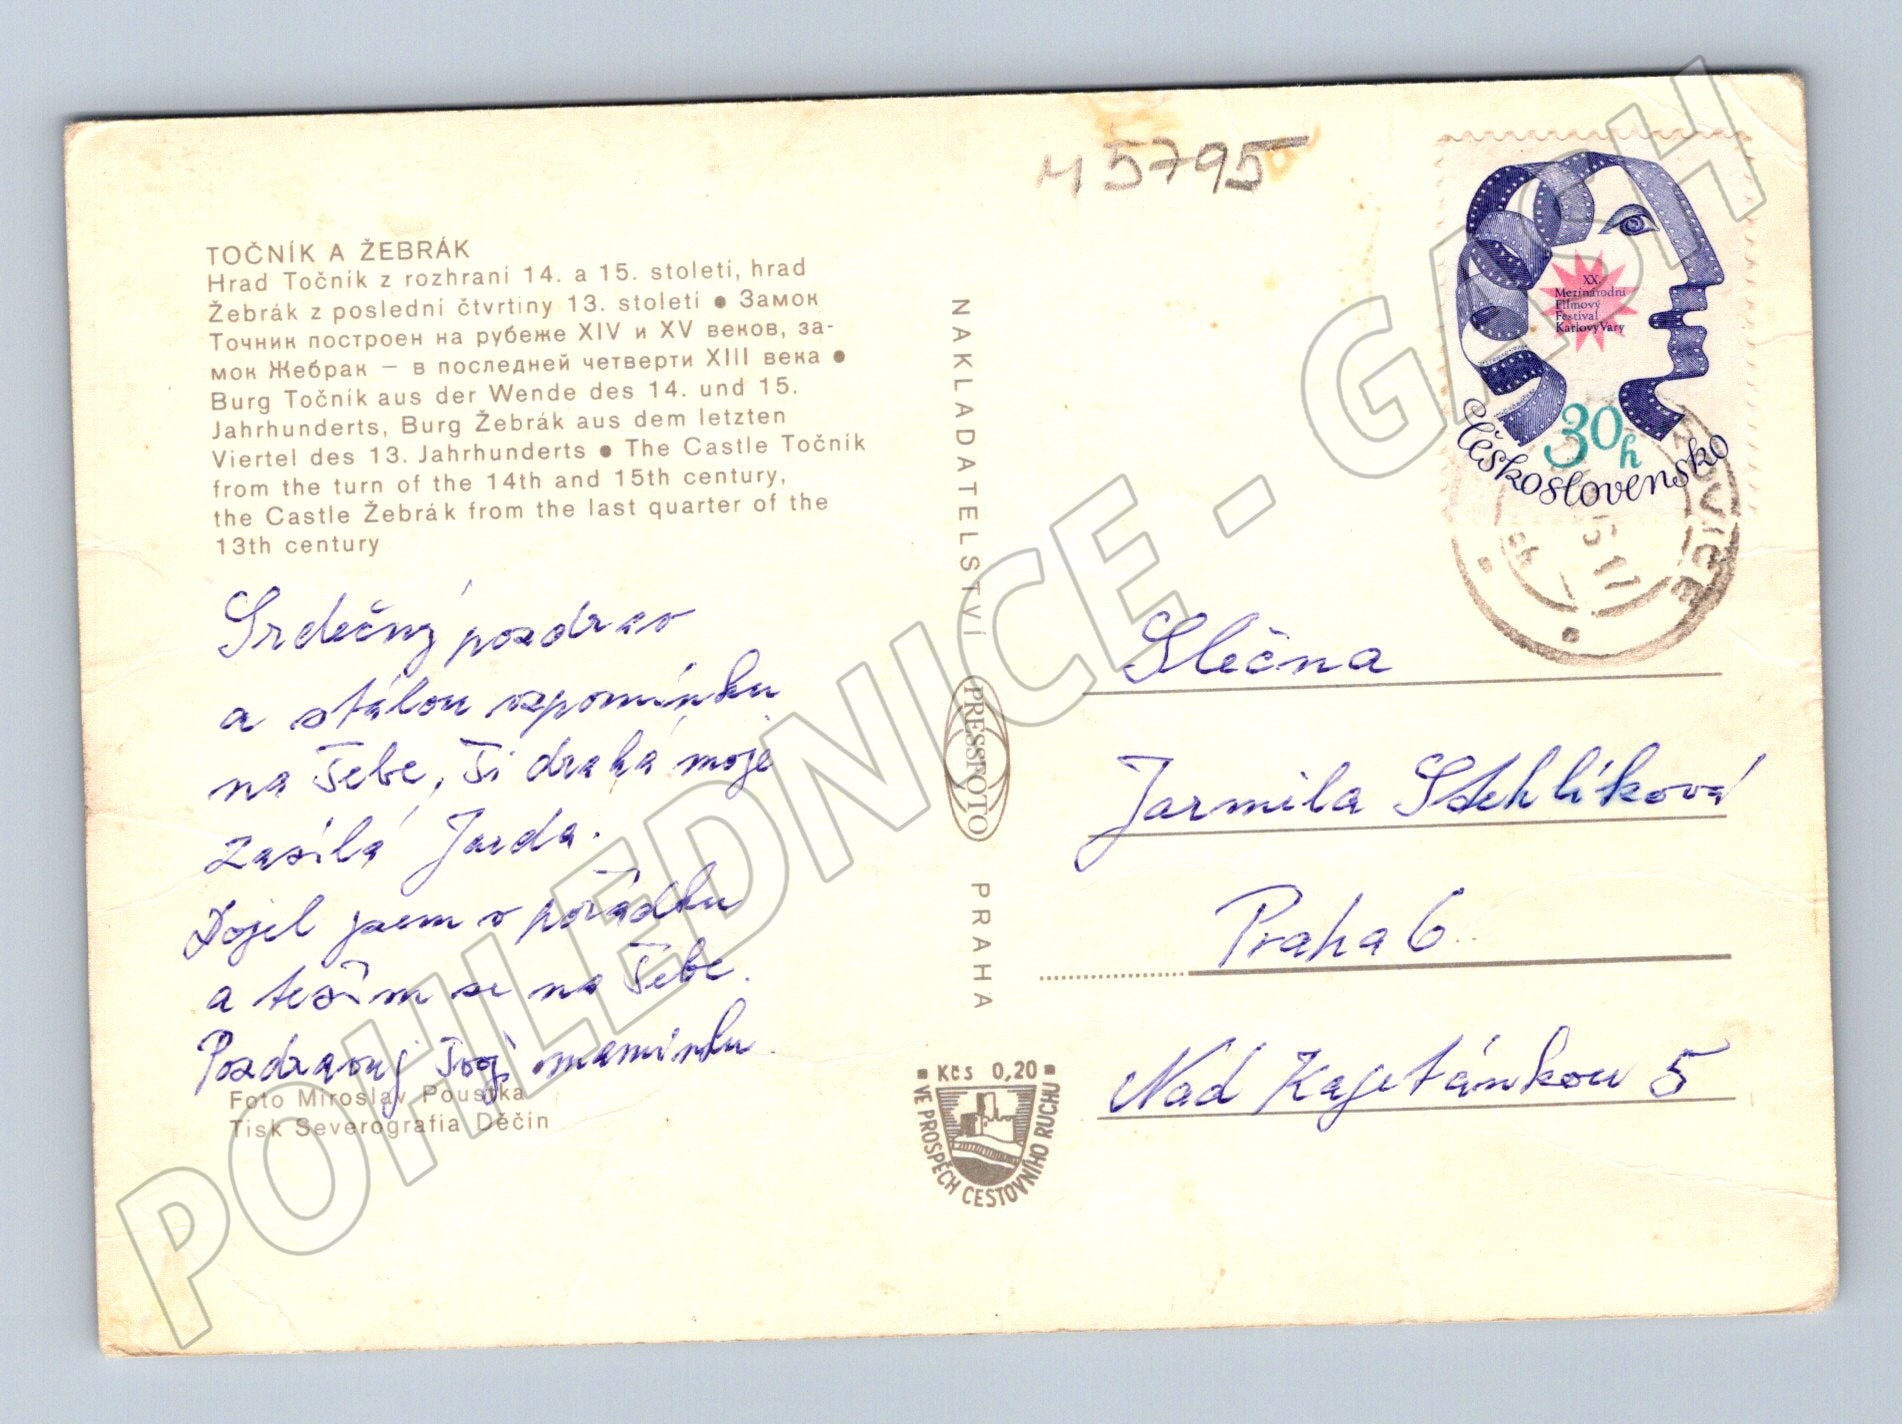 M 5795
XX.
Mezinárodní
Filmový
Festival
Karlovy Vary
30h
Československo
TOČNÍK A ŽEBRÁK
Hrad Točník z rozhraní 14. a 15. století, hrad
Žebrák z poslední čtvrtiny 13. století • Замок
Точник построен на рубеже XIV и XV веков, за-
мок Жебрак – в последней четверти XIII века •
Burg Točník aus der Wende des 14. und 15.
Jahrhunderts, Burg Žebrák aus dem letzten
Viertel des 13. Jahrhunderts • The Castle Točník
from the turn of the 14th and 15th century,
the Castle Žebrák from the last quarter of the
13th century
Srdečný pozdrav
a stálou vzpomínku
na Tebe, Ti drahá moje
zasílá Jarda.
Dojel jsem v pořádku
a těším se na Tebe.
Pozdravuj Tvoji maminku.
Foto Miroslav Poustka
Tisk Severografia Děčín
NAKLADATELSTVÍ
PRESSFOTO
PRAHA
Kčs 0,20
VE PROSPĚCH CESTOVNÍHO RUCHU
Slečna
Jarmila Stehlíková
Praha 6
Nad Kajetánkou 5
POHLEDNICE - GASH